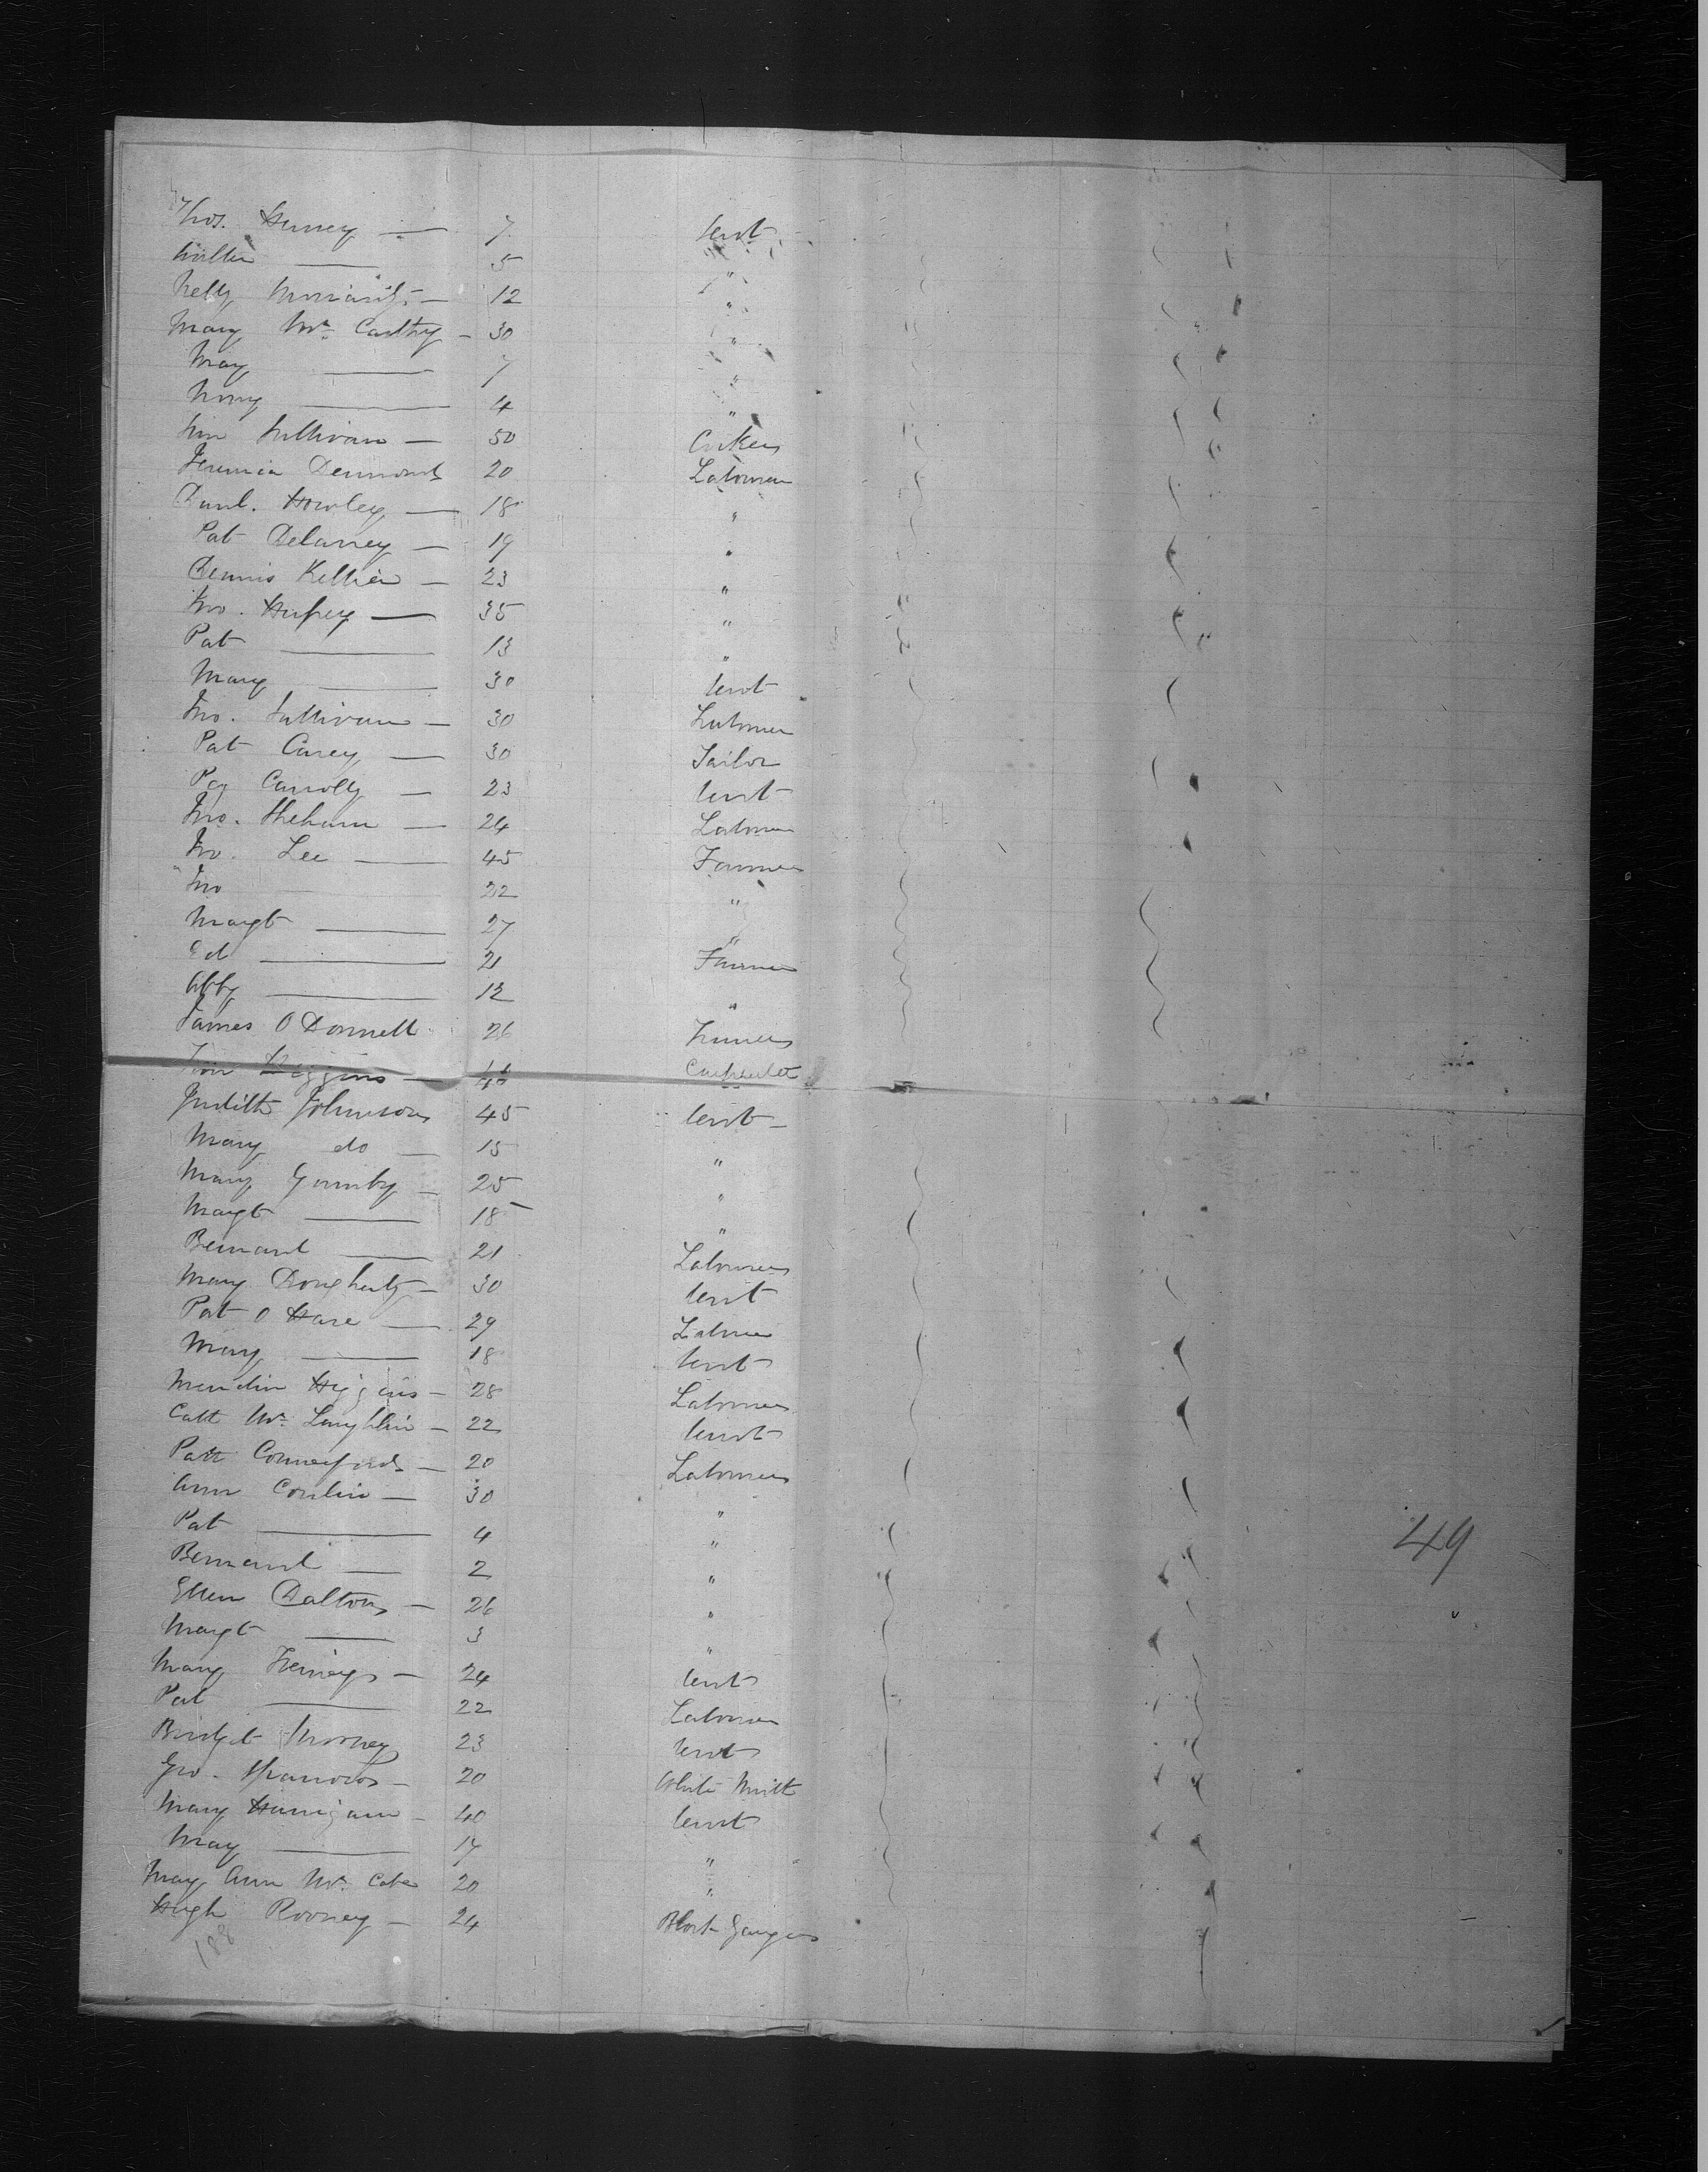 Thos. Hurney — 7 servt
5 "
Nelly Moriarity — 12 "
Mary Mc Carthy — 30 "
May — 7 "
Nony — 4 "
Tim Sullivan — 50
Jeremia Desmond 20 Labourer
Danl. Howley — 18 "
Pat Delaney — 19 "
Dennis Kelliher — 23 "
Jno. Hussey — 35 "
Pat — 13 "
Mary — 30 servt
Jno. Sullivan — 30 Labourer
Pat Carey — 30 Tailor
Peg Carrolly — 23 servt
Jno. Shehan — 24 Labourer
Jno. Lee — 45 Farmer
Jno 22 "
Margt — 27 "
Ed — 21 Farmer
Abby — 12 "
James O Donnell 26 Farmer
Higgins — Carpenter
Judith Johnson 45 servt —
Mary do — 15 "
Mary Gormly — 25 "
Margt — 18 "
Bernard — 21 Labourer
Mary Dougherty — 30 servt
Pat O Hare — 29 Labourer
Mary — 18 servt
Higgins — 28 Labourer
Cath Mc Laughlin — 22 servt
Patt Comerford — 20 Labourer
Ann Conlin — 30 "
Pat — 4 "
49
Bernard — 2 "
Ellen Dalton — 26 "
Margt — 3 "
Mary — 24 servt
Pat — 22 Labourer
Bridget Mooney 23 servt
Geo. — 20 White Smith
Mary Hanigan — 40 servt
May — 14 "
May Ann Mc Cabe 20 "
Hugh Rooney — 24
188